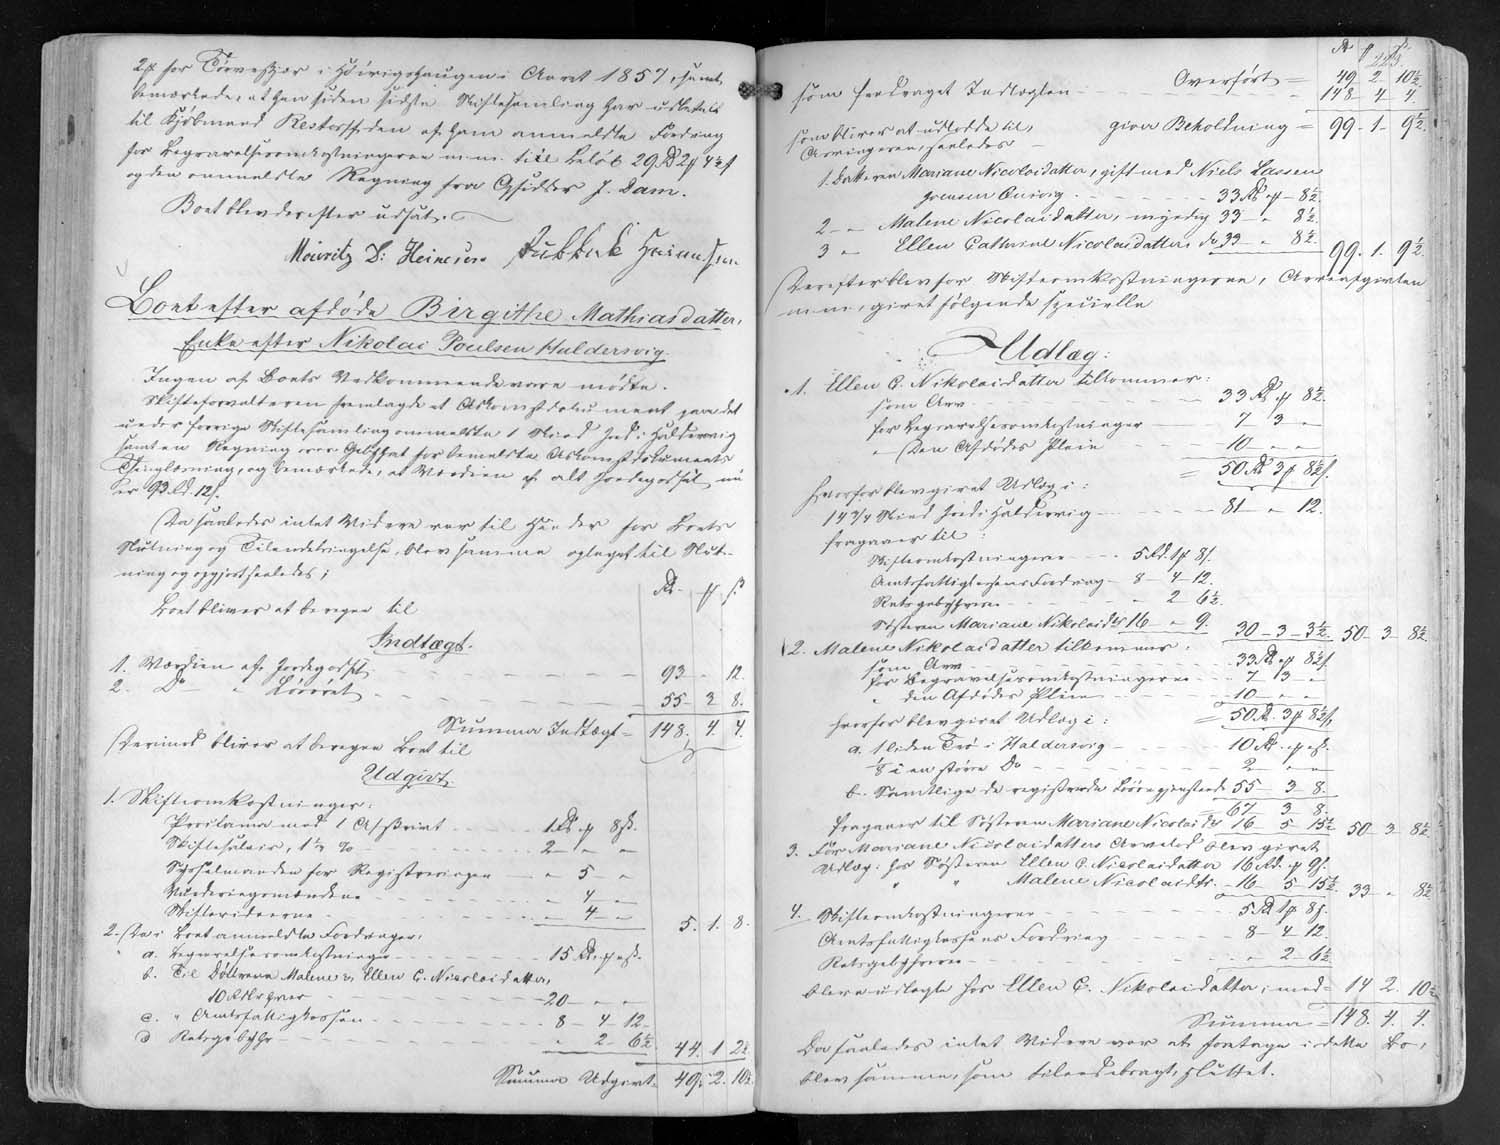 2 ß for Tørveskjær i Hørisgshaugen i Aaret 1857, samt
bemærkede, at han siden sidste Skiftesamling har udbetalt
til Kjøbmand Restorff den af ham anmeldte Fordring
for Begravelsesomkostningerne m.m. til Beløb 29 Rd 2 ß 4½ s
og den anmeldte Regning fra J. Dam.
Boet blev derefter udsat.
Mouritz D: Heinesen
Boet efter afdøde Birgithe Mathiasdatter,
Enke efter Nikolai Poulsen Haldersvig.
Ingen af Boets Vedkommende vare mødte.
Skifteforvalteren fremlagde et Adkomstdokument paa det
under forrige Skiftesamling anmeldte 1 Mind Jord i Haldersvig
samt en Regning over Gebyhr for bemeldte Adkomstdokuments
Tinglæsning, og bemærkede, at Værdien af alt Jordegodset nu
er 93 Rd. 12 s.
Da saaledes intet Videre var til Hinder for Boets
Slutning og Tilendebringelse, blev samme optaget til Slut-
ning og opgjort saaledes;
Rd - ß s
Boet bliver at beregne til
Indtægt.
1. Værdien af Jordegodset 93 - 12.
2. Do - " Løsøret 55 - 3 8.
Summa Indtægt = 148. 4. 4.
Derimod bliver at beregne Boet til
Udgivt.
1. Skifteomkostninger:
Proclama med 1 Afskrivt 1 Rd " ß 8 s.
Skiftesalair, 1½ % 2 - " "
Sysselmanden for Registreringen - " 5 - "
Vurderingsmændene " 4 - "
Skiftevidnerne - " 4 - " 5. 1. 8.
2. De i Boet anmeldte Fordringer:
a. Begravelsesomkostninger 15 Rd " ß " s.
b. Til Døttrene Malene & Ellen C. Nicolaidatter,
10 Rdlr hver 20 - " - "
c. " Amtsfattigkassen 8 - 4 - 12
d Retsgebyhr " 2 - 6½ 44. 1 2½
Summa Udgivt 49. 2. 10½
Rd ß s
223.
Overført = 49 2 10½
som fradraget Indtægten - 148 - 4 4.
giver Beholdning = 99 - 1 - 9½
som bliver at udlodde til
Arvingerne, saaledes -
1. Datteren Mariane Nicolaidatter, gift med Niels Lassen
33 Rd " ß 8½.
2 - " Malene Nicolaidatter, myndig 33 - " 8½.
3 " Ellen Cathrine Nicolaidatter, do 33 - " 8½. 99. 1. 9½.
Derefter blev for Skifteomkostningerne, Arveafgivten
m.m. givet følgende specielle
Udlæg:
1. Ellen C. Nikolaidatter tilkommer:
som Arv 33 Rd " ß 8½.
for Begravelsesomkostninger 7 3 "
" den Afdødes Pleie 10 " "
= 50 Rd 3 ß 8½ s.
hvorfor blev givet Udlæg i:
14 3/4 Mind Jord i Haldersvig 81 - " 12.
fragaaer til:
Skifteomkostningerne 5 Rd. 1 ß 8 s.
Amtsfattigkassens Fordring - 8 - 4 - 12.
Retsgebyhrene " 2 6½.
Søsteren Mariane Nikolaidtr 16 " 9. 30 - 3 - 3½. 50 - 3 - 8½.
2. Malene Nikolaidatter tilkommer:
som Arv 33 Rd " ß 8½ s.
for Begravelsesomkostningerne 7 3 "
" den Afdødes Pleie 10 - " "
= 50 Rd. 3 ß 8½ s.
hvorfor blev givet Udlæg i:
a. 1 liden Trø i Haldersvig 10 Rd. " ß " s.
⅛ i en større Do 2 - " "
b. Samtlige de registrerede Løsøregjenstande 55 - 3 - 8.
67 3 8.
fragaaer til Søsteren Mariane Nicolaidtr 16 5 15½ 50 - 3 - 8½
3. For Mariane Nicolaidatters Arvelod blev givet
Udlæg: hos Søsteren Ellen C. Nicolaidatter 16 Rd. " ß 9 s.
" " Malene Nicolaidtr. - 16 - 5 15½. 33 - " 8½
4. Skifteomkostningerne 5 Rd 1 ß 8 s.
Amtsfattigkassens Fordring 8 - 4 12.
Retsgebyhrene " 2 - 6½
bleve udlagte hos Ellen C. Nikolaidatter, med - 14 2. 10½
Summa = 148. 4. 4.
Da saaledes intet Videre var at foretage i dette Bo,
blev samme, som tilendebragt, sluttet.